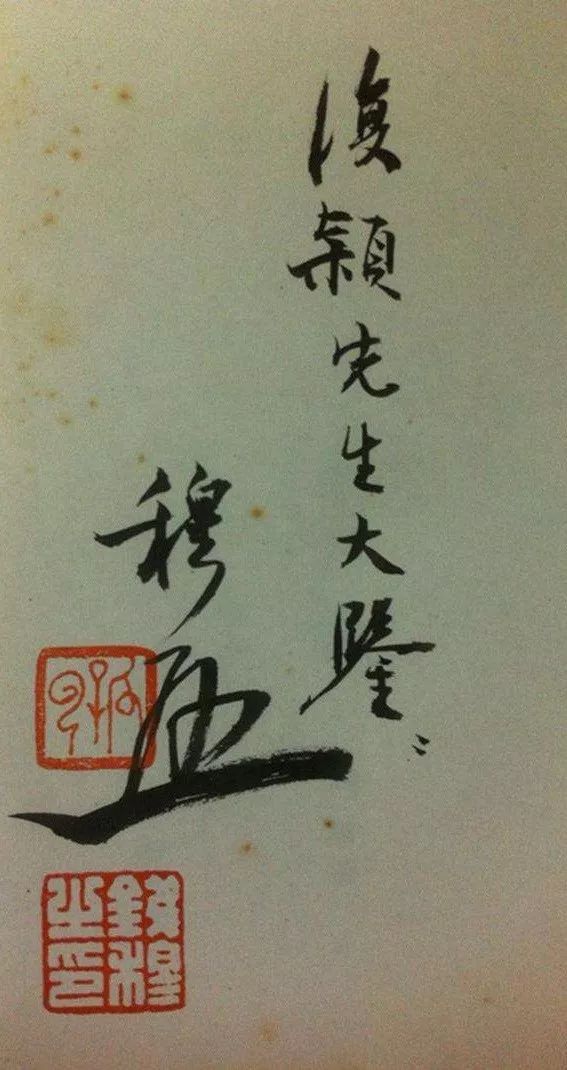 復穎先生大鑒
穆
錢穆之印